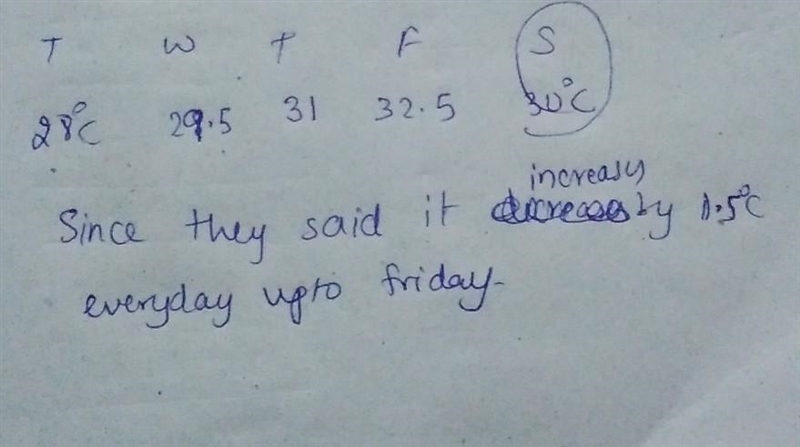 T W T F S
28°C 29.5 31 32.5 30°C
increasy
Since they said it by 1.5°C
everyday upto friday.